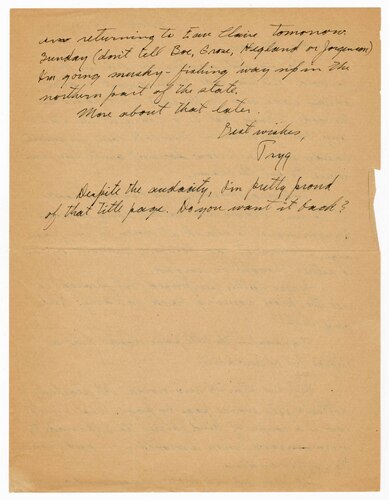 am returning to Eau Claire tomorrow.
Sunday (don't tell Boe, Grose, Hegland or Jorgenson)
I'm going musky-fishing 'way up in the
northern part of the state.
More about that later.
Best wishes,
Tryg
Despite the audacity, I'm pretty proud
of that title page. Do you want it back?